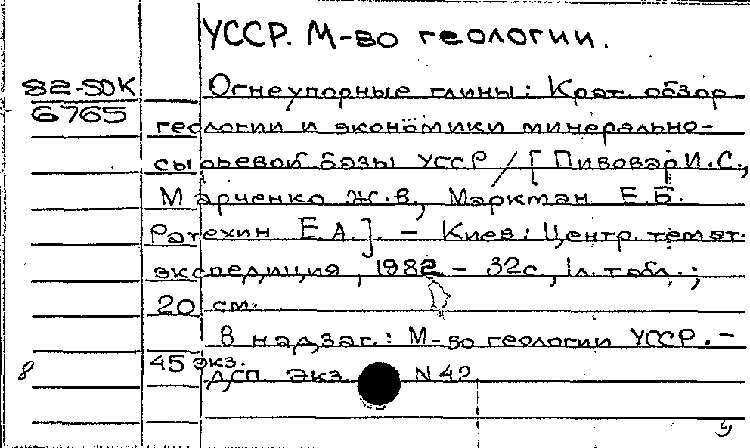 УССР. М-во геологии.
82-5ДК Огнеупорные глины: Крат. обзор
6765
геологии и экономики минерально-
сырьевой базы УССР / [Пивовар И.С.,
Марченко Ж.В., Марктан Е.Б.
Ратехин Е.А.]. – Киев: Центр. темат.
экспедиция, 1982 – 32с., 1л. табл.;
20 см.
В надзаг.: М-во геологии УССР. –
45 экз.
8 ДСП экз N 42